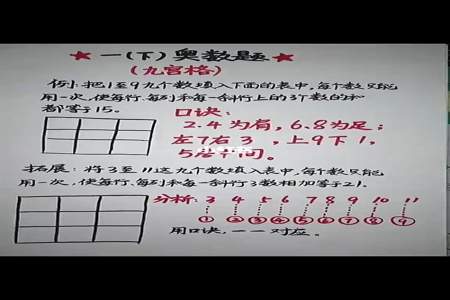 ★ 一(下)奥数题 ★
(九宫格)
例:把1至9九个数填入下面的表中,每个数只能
用一次,使每行、每列和每一斜行上的3个数的和
都等于15。
口诀:
2.4为肩,6.8为足;
左7右3,上9下1,
5居中间。
拓展:将3至11这九个数填入表中,每个数只能
用一次,使每行、每列和每一斜行3数相加等于21。
分析:3 4 5 6 7 8 9 10 11
① ② ③ ④ ⑤ ⑥ ⑦ ⑧ ⑨
用口诀,一一对应。